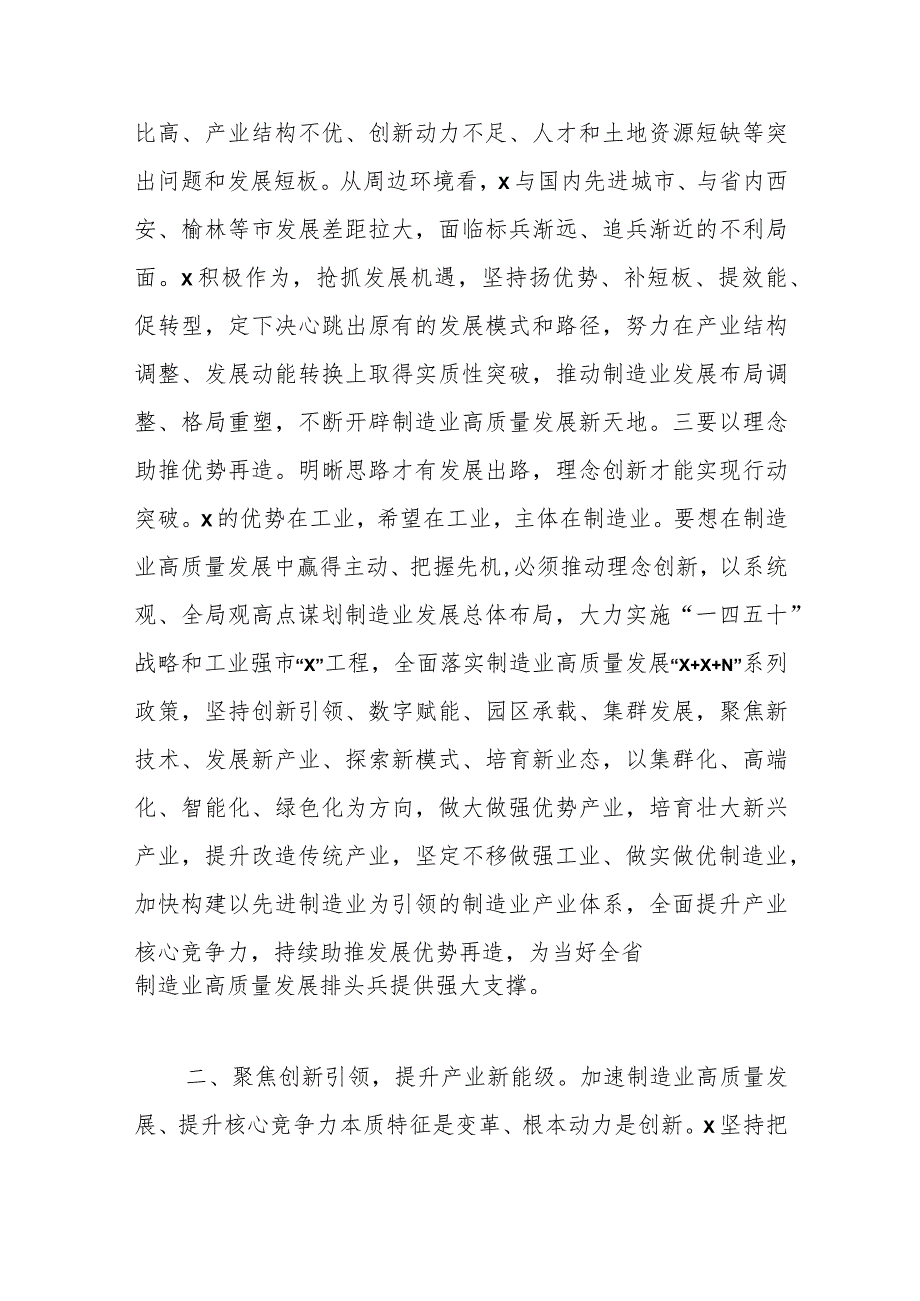 比高、产业结构不优、创新动力不足、人才和土地资源短缺等突
出问题和发展短板。从周边环境看，x 与国内先进城市、与省内西
安、榆林等市发展差距拉大，面临标兵渐远、追兵渐近的不利局
面。x 积极作为，抢抓发展机遇，坚持扬优势、补短板、提效能、
促转型，定下决心跳出原有的发展模式和路径，努力在产业结构
调整、发展动能转换上取得实质性突破，推动制造业发展布局调
整、格局重塑，不断开辟制造业高质量发展新天地。三要以理念
助推优势再造。明晰思路才有发展出路，理念创新才能实现行动
突破。x 的优势在工业，希望在工业，主体在制造业。要想在制造
业高质量发展中赢得主动、把握先机,必须推动理念创新，以系统
观、全局观高点谋划制造业发展总体布局，大力实施“一四五十”
战略和工业强市“X”工程，全面落实制造业高质量发展“X+X+N”系列
政策，坚持创新引领、数字赋能、园区承载、集群发展，聚焦新
技术、发展新产业、探索新模式、培育新业态，以集群化、高端
化、智能化、绿色化为方向，做大做强优势产业，培育壮大新兴
产业，提升改造传统产业，坚定不移做强工业、做实做优制造业，
加快构建以先进制造业为引领的制造业产业体系，全面提升产业
核心竞争力，持续助推发展优势再造，为当好全省
制造业高质量发展排头兵提供强大支撑。
二、聚焦创新引领，提升产业新能级。加速制造业高质量发
展、提升核心竞争力本质特征是变革、根本动力是创新。x 坚持把